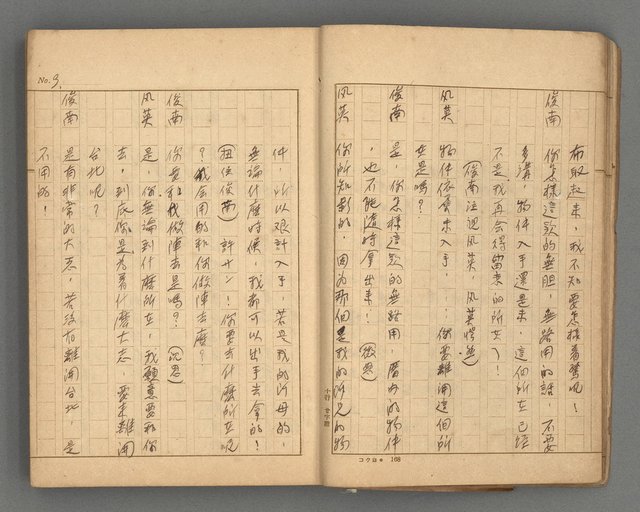 布取起來，我不知要怎樣着驚呢！
俊南　你怎樣這款的無胆，無路用的話，不要
多講，物件入手還是未，這個所在已經
不是我再会得留来的所在！
（俊南注視风英，风英愕然）
风英　物件依舊未入手，你要離開這個所
在是嗎？
俊南　是，你怎樣這款的無路用，曆内的物件
，也不能隨時拿出来！（微忍）
风英　你所知影的，因为那個是我的所兄的物
件，所以艰計入手，若是我的所母的，
無論什麼時候，我都可以出手去拿的！
（扭住俊南）許サン！你要去什麼所在呢
？我会用的和你做陣去麼？
俊南　你要和我做陣去是嗎？（沉思）
风英　是，你無論到什麼所在，我願意要和你
去，到底你是为着什麼大志，要来離開
台北呢？
俊南　是有非常的大志，若没有離開台北，是
不用的！
No. 3.
十行 廿字詰
コクヨ 168